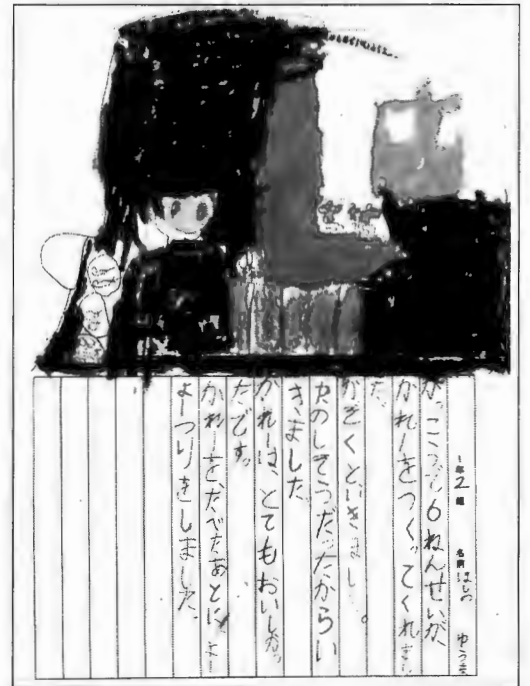 1年2組 名前 はしの ゆうき
がっこうで、6ねんせいが、
かれーをつくってくれまし
た。
かぞくといきまし。
たのしそうだったからい
きました。
かれーは、とてもおいしかっ
たです。
かれーをたべたあとに、よー
よーつりをしました。